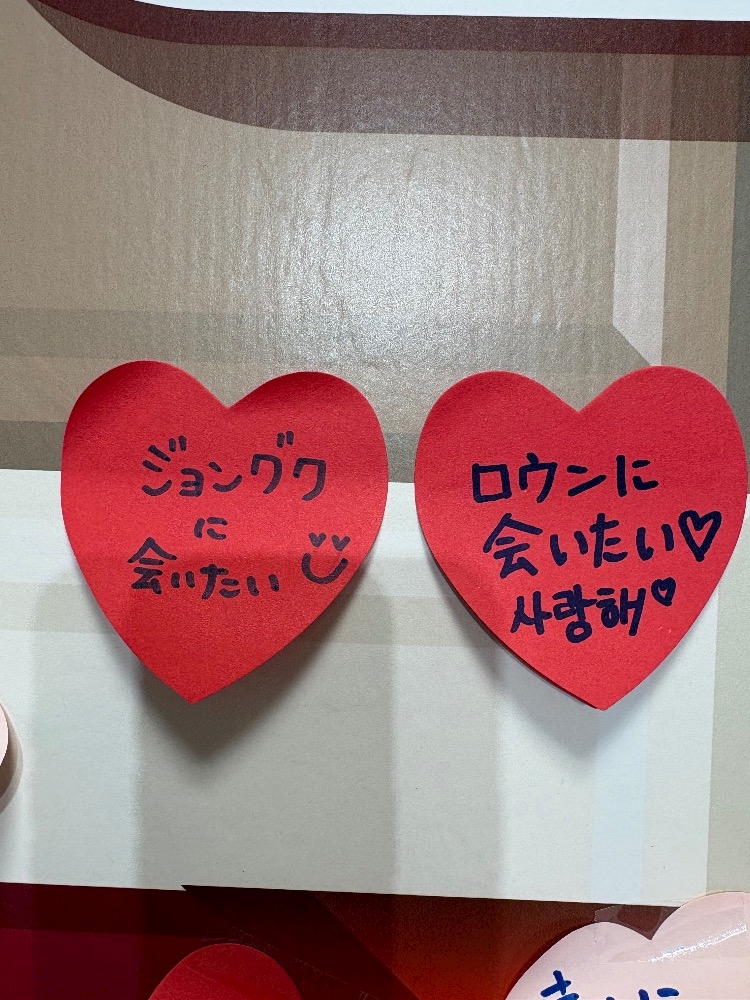 ジョングク
に
会いたい
ロウンに
会いたい♡
사랑해♡